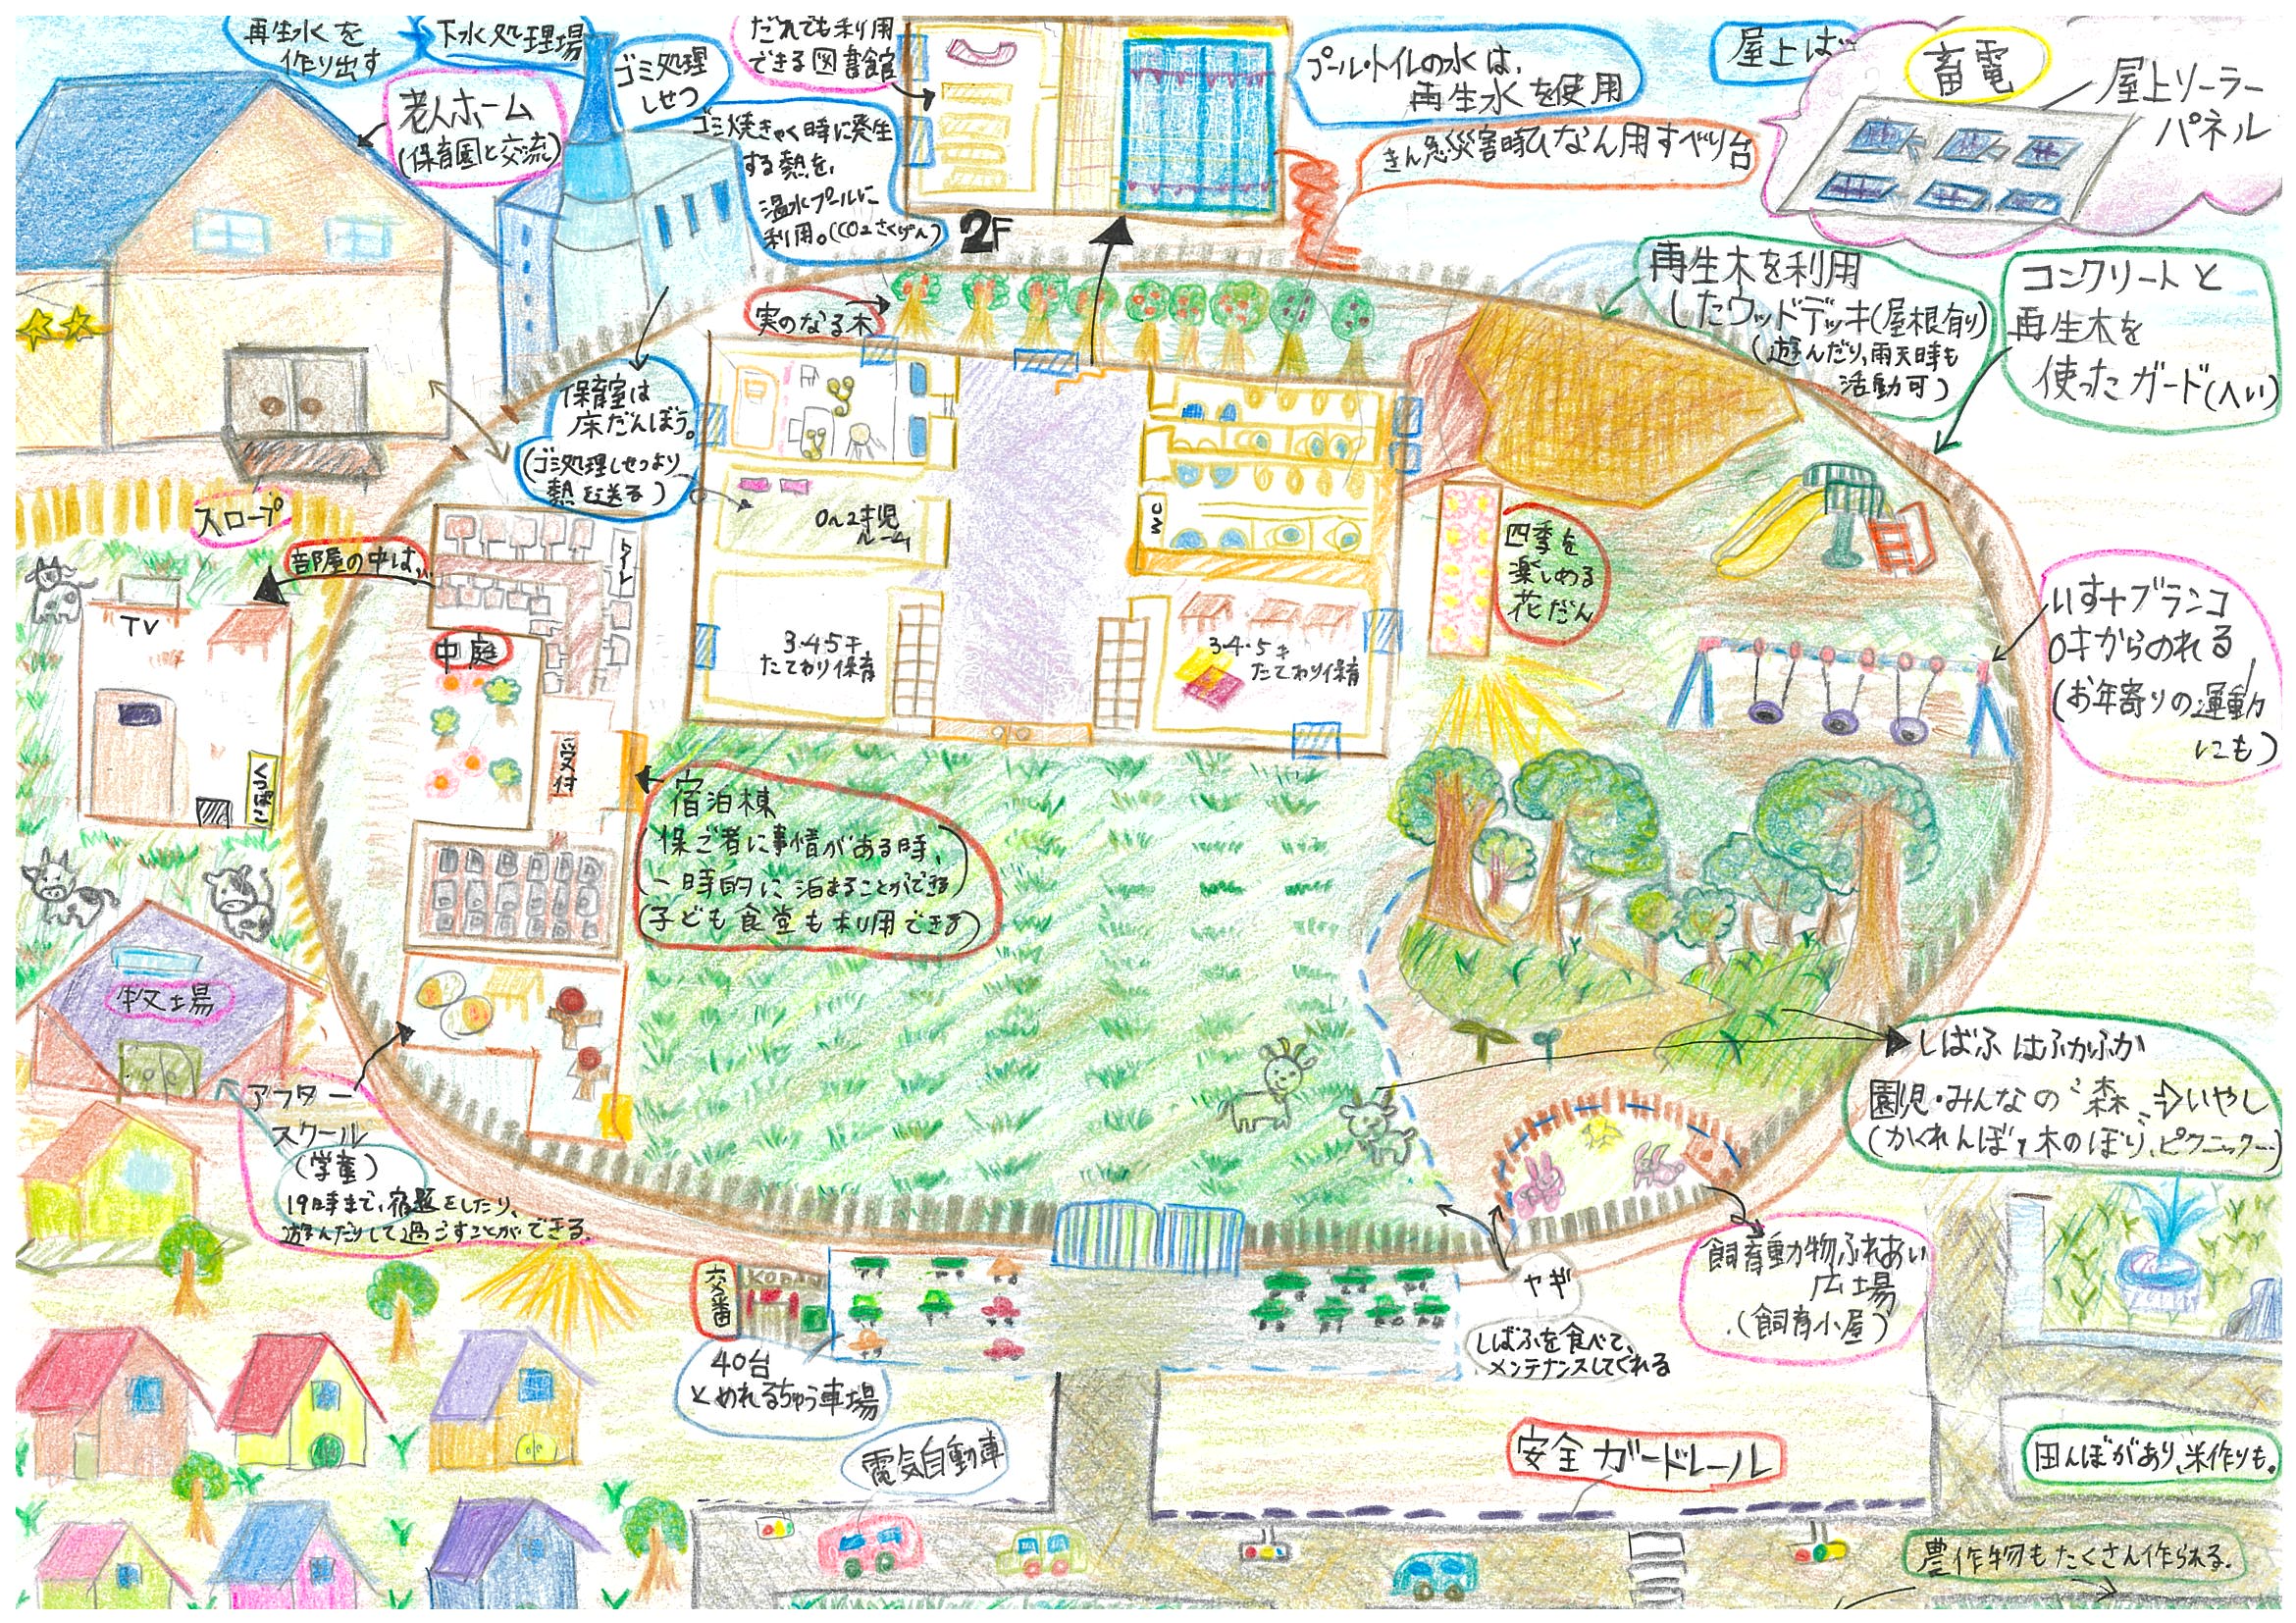 再生水を
作り出す
下水処理場
ゴミ処理
しせつ
だれでも利用
できる図書館
プール・トイルの水は、
再生水を使用
屋上は
畜電
屋上ソーラー
パネル
老人ホーム
(保育園と交流)
ゴミ焼きゃく時に発生
する熱を、
温水プールに
利用。(CO2さくげん)
2F
きん急災害時ひなん用すべり台
実のなる木
再生木を利用
したウッドデッキ(屋根有り)
(遊んだり、雨天時も
活動可)
コンクリートと
再生木を
使ったガード(へい)
保育室は
床だんぼう。
(ゴミ処理しせつより
熱を送る)
スロープ
部屋の中は、
トイレ
0~2才児
ルーム
WC
四季を
楽しめる
花だん
TV
くつばこ
中庭
受付
3・4・5才
たてわり保育
3・4・5才
たてわり保育
いす+ブランコ
0才からのれる
(お年寄りの運動
にも)
宿泊棟
保ご者に事情がある時、
一時的に泊まることができる
(子ども食堂も利用できる)
牧場
アフター
スクール
(学童)
19時まで、宿題をしたり、
遊んだりして過ごすことができる。
しばふはふかふか
園児・みんなの“森”⇒いやし
(かくれんぼ、木のぼり、ピクニック…)
交番
KOBAN
40台
とめれるちゅう車場
ヤギ
しばふを食べて、
メンテナンスしてくれる
飼育動物ふれあい
広場
(飼育小屋)
電気自動車
安全ガードレール
田んぼがあり、米作りも。
農作物もたくさん作られる。